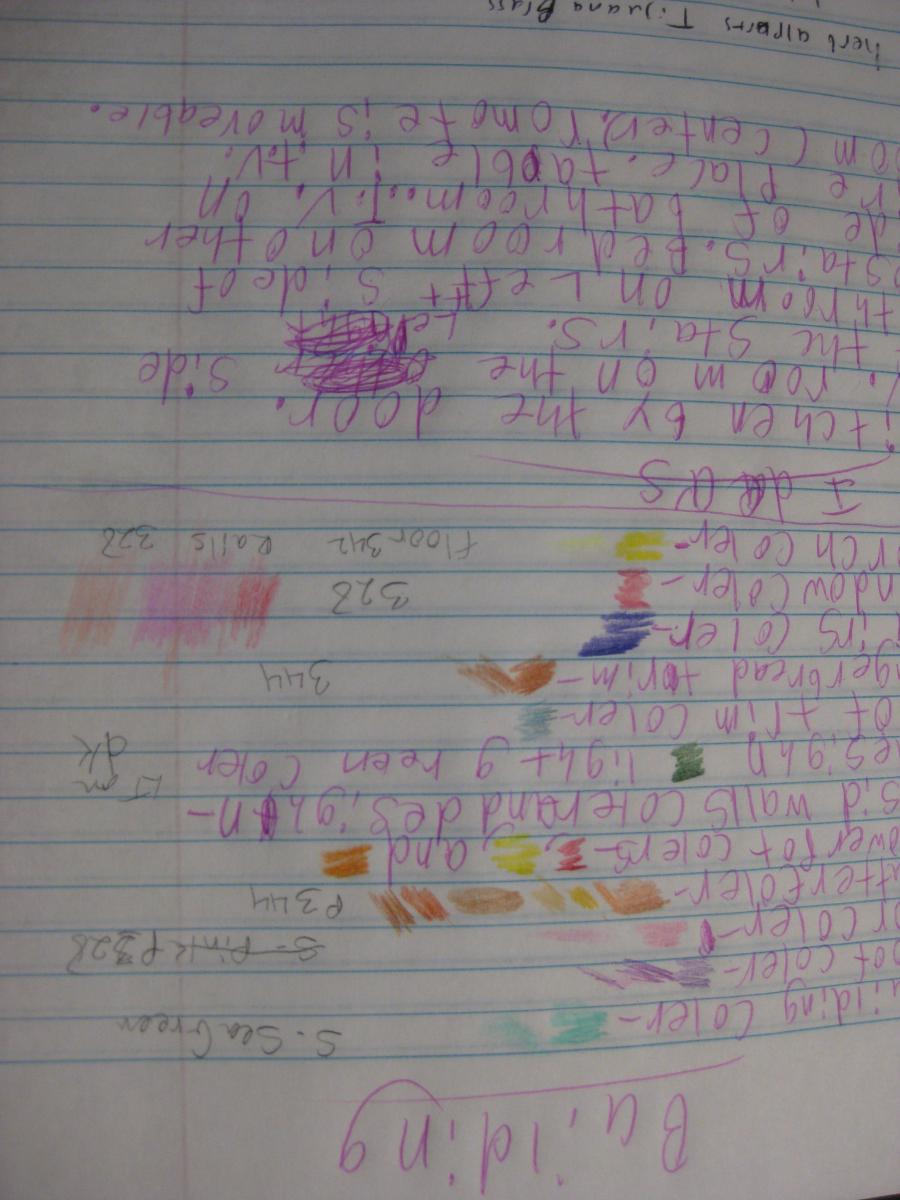 Building
uilding Coler- S. Sea Green
oof coler-
or coler- S-Pink P328
utter coler- P344
ower pot colers- , and
sid walls coler and desighn-
desighn light green Coler Lt on dk
of trim Coler-
gerbread trim- 344
irs coler-
ndow coler- 328
orch coler- floor 342 Rails 328
Ideas
itchen by the door.
. room on the side
the stairs. Left
throom on Left side of
stairs. Bedroom on other
de of bathroom. T.V. on
re place. table in t.v.
om (center). romote is moveable.
herb alperts Tijuana Brass